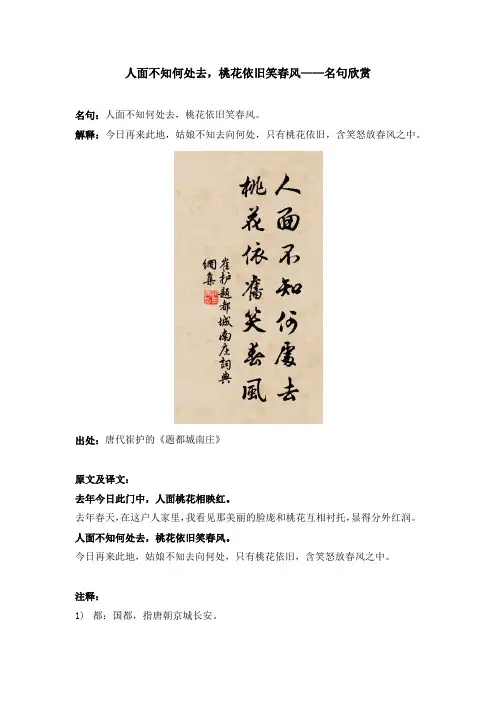 人面不知何处去，桃花依旧笑春风——名句欣赏
名句：人面不知何处去，桃花依旧笑春风。
解释：今日再来此地，姑娘不知去向何处，只有桃花依旧，含笑怒放春风之中。
人面不知何處去
桃花依舊笑春風
崔护题都城南庄詞典
網集
出处：唐代崔护的《题都城南庄》
原文及译文：
去年今日此门中，人面桃花相映红。
去年春天，在这户人家里，我看见那美丽的脸庞和桃花互相衬托，显得分外红润。
人面不知何处去，桃花依旧笑春风。
今日再来此地，姑娘不知去向何处，只有桃花依旧，含笑怒放春风之中。
注释：
1) 都：国都，指唐朝京城长安。